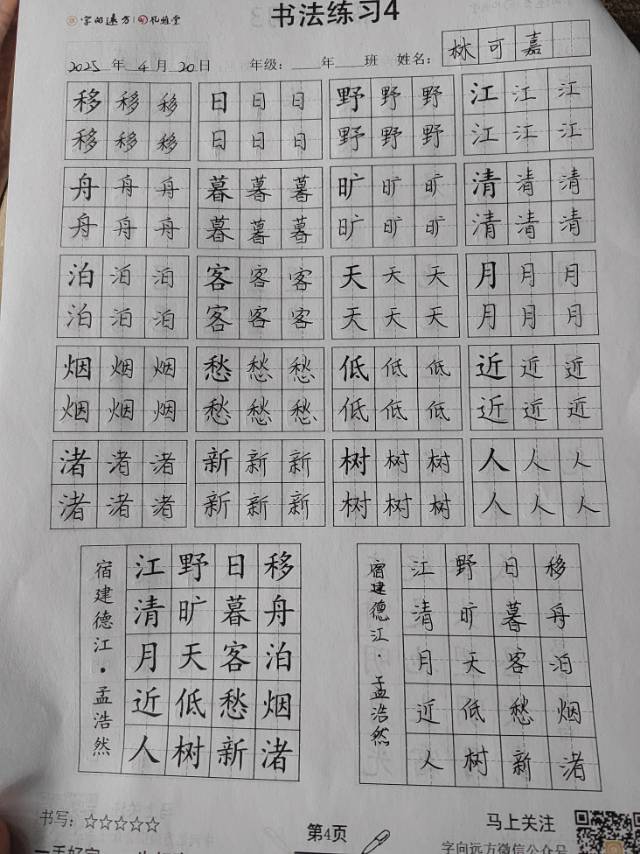 字向远方 礼雅堂
书法练习4
2025 年 4 月 20 日 年级：___年___班 姓名： 林可嘉
移移移 日日日 野野野 江江江
移移移 日日日 野野野 江江江
舟舟舟 暮暮暮 旷旷旷 清清清
舟舟舟 暮暮暮 旷旷旷 清清清
泊泊泊 客客客 天天天 月月月
泊泊泊 客客客 天天天 月月月
烟烟烟 愁愁愁 低低低 近近近
烟烟烟 愁愁愁 低低低 近近近
渚渚渚 新新新 树树树 人人人
渚渚渚 新新新 树树树 人人人
宿建德江·孟浩然
移舟泊烟渚
日暮客愁新
野旷天低树
江清月近人
宿建德江·孟浩然
移舟泊烟渚
日暮客愁新
野旷天低树
江清月近人
书写：☆☆☆☆☆
第4页
马上关注
字向远方微信公众号
一手好字